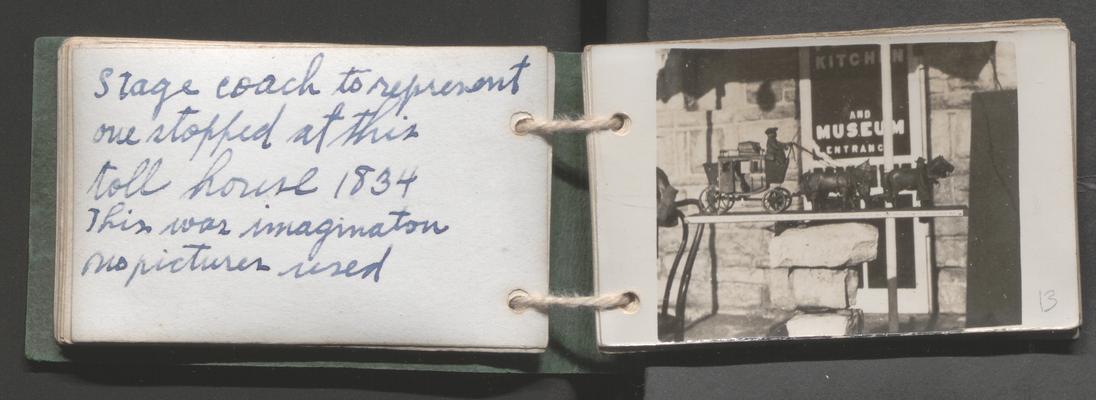 Stage coach to represent
one stopped at this
toll house 1834
This was imaginaton
no pictures used
KITCHEN
AND
MUSEUM
ENTRANC
13